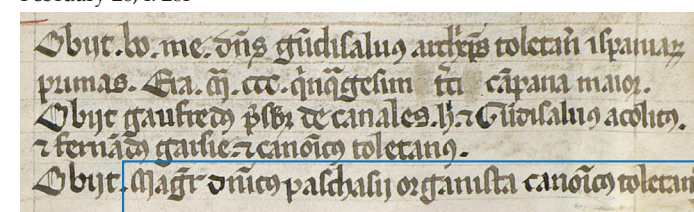 February 28, f. 28r
Obijt. bo. me. dñs gũdisaluꝰ archiep̃s toletañ ispaniaꝝ
primas. Era. m̃. ccc. q̃nq̃gesim̃ t̃ci cãpana maior.
Obijt gaufredꝰ p̃sbr̃ de canales. h̃. ⁊ Gũdisaluꝰ acolitꝰ.
⁊ fernãdꝰ garsie. ⁊ canoĩcꝰ toletanꝰ.
Obijt. Mag̃r dñicꝰ paschasij organista canoĩcꝰ toletan